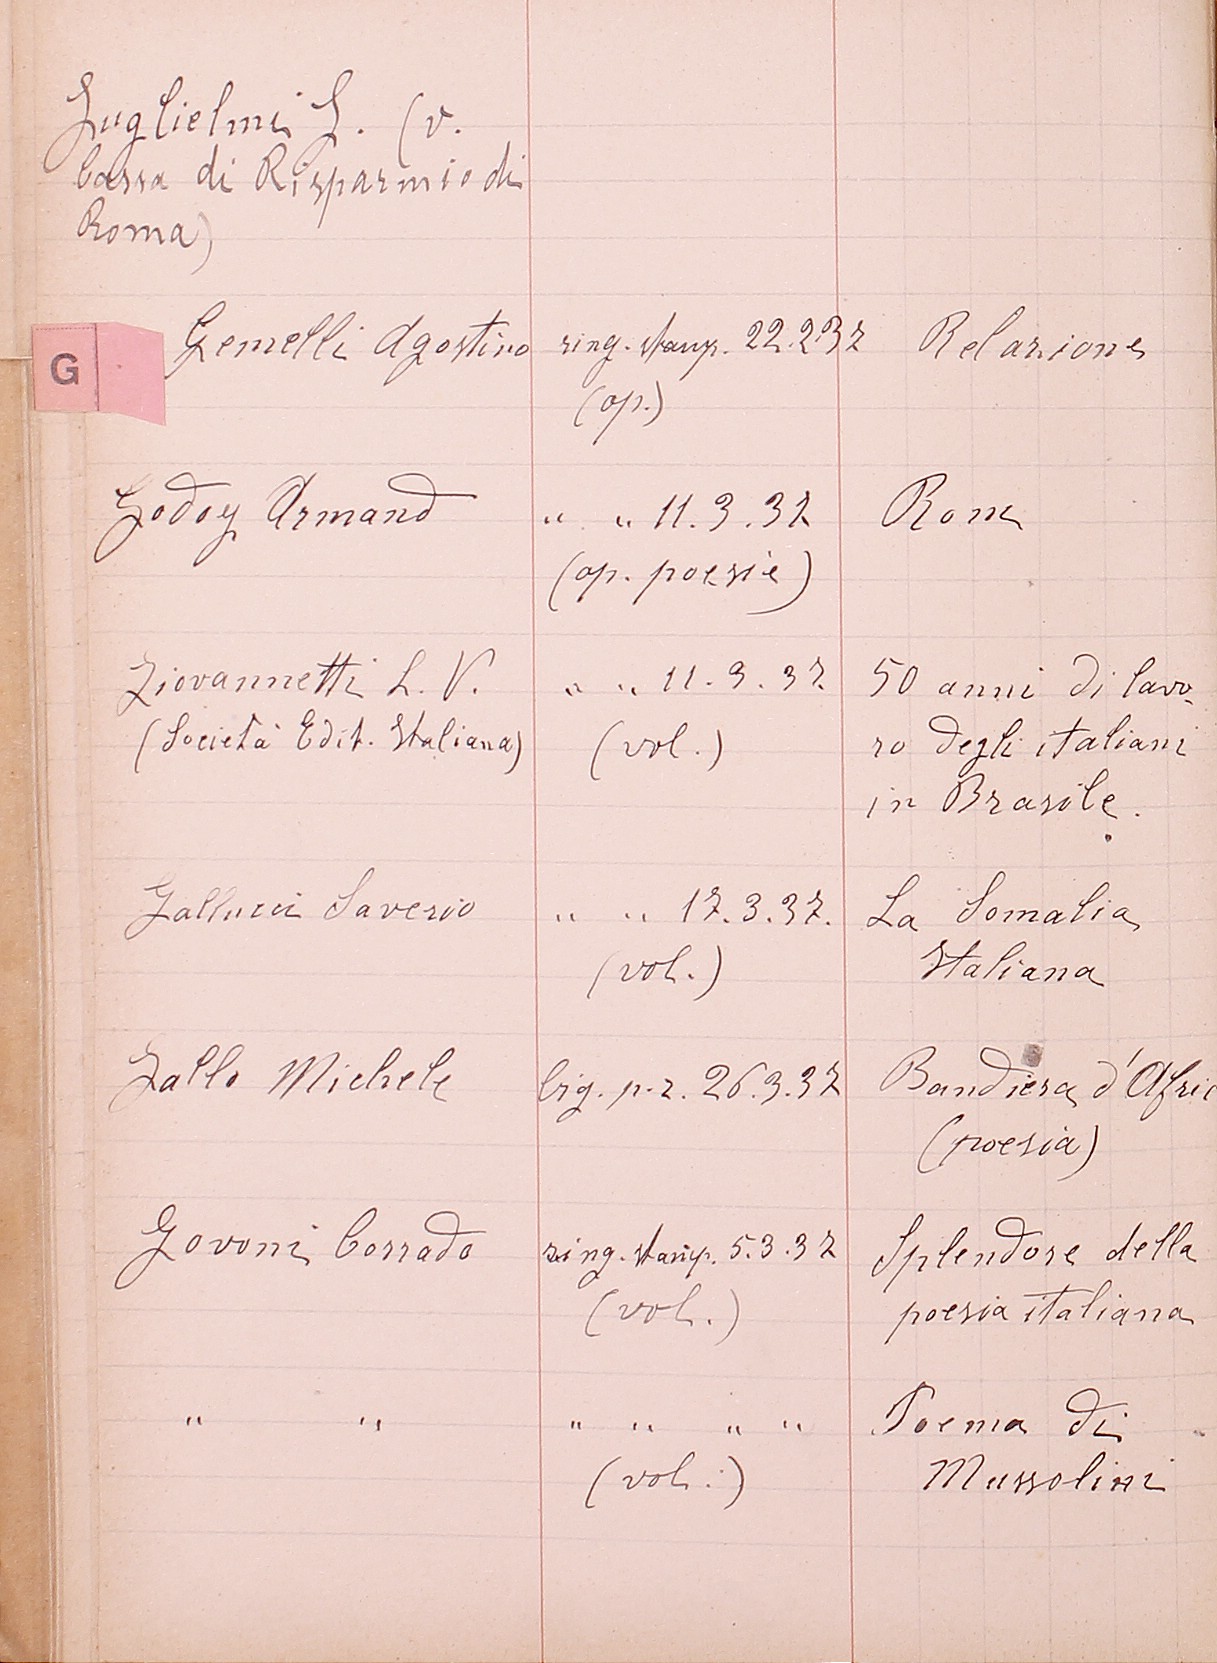 Guglielmi G. (v.
Cassa di Risparmio di
Roma)
G
Gemelli Agostino ring. stamp. 22.2.37 Relazione
(op.)
Godoy Armand " " 11.3.37 Rome
(op. poesie)
Giovannetti L. V. " " 11.3.37. 50 anni di lavo-
(Società Edit. Italiana) (vol.) ro degli italiani
in Brasile.
Gallucci Saverio " " 17.3.37. La Somalia
(vol.) Italiana
Gallo Michele big. p.r. 26.3.37 Bandiera d'Afric
(poesia)
Govoni Corrado ring. stamp. 5.3.37 Splendore della
(vol.) poesia italiana
" " " " " " Poema di
(vol.) Mussolini